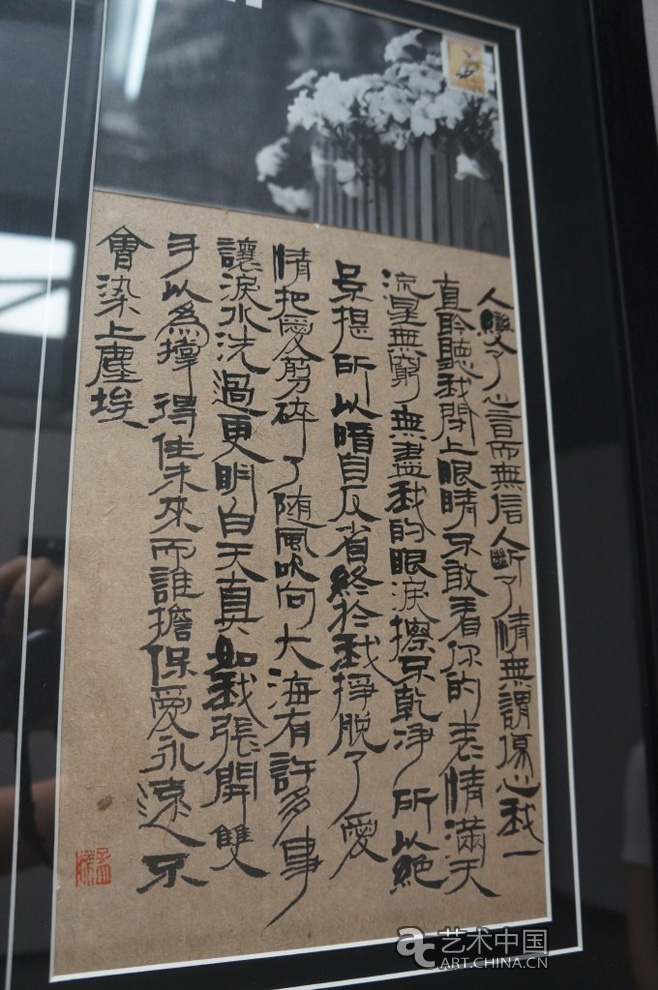 人變了心言而無信人斷了情無謂傷心我一
直聆聽我閉上眼睛不敢看你的表情滿天
流星無窮無盡我的眼淚擦不乾淨所以絕
口不提所以暗自反省終於我掙脫了愛
情把愛剪碎了随風吹向大海有許多事
讓淚水洗過更明白天真如我張開雙
手以為撐得住未來而誰擔保愛永遠不
會染上塵埃
艺术中国
ART.CHINA.CN